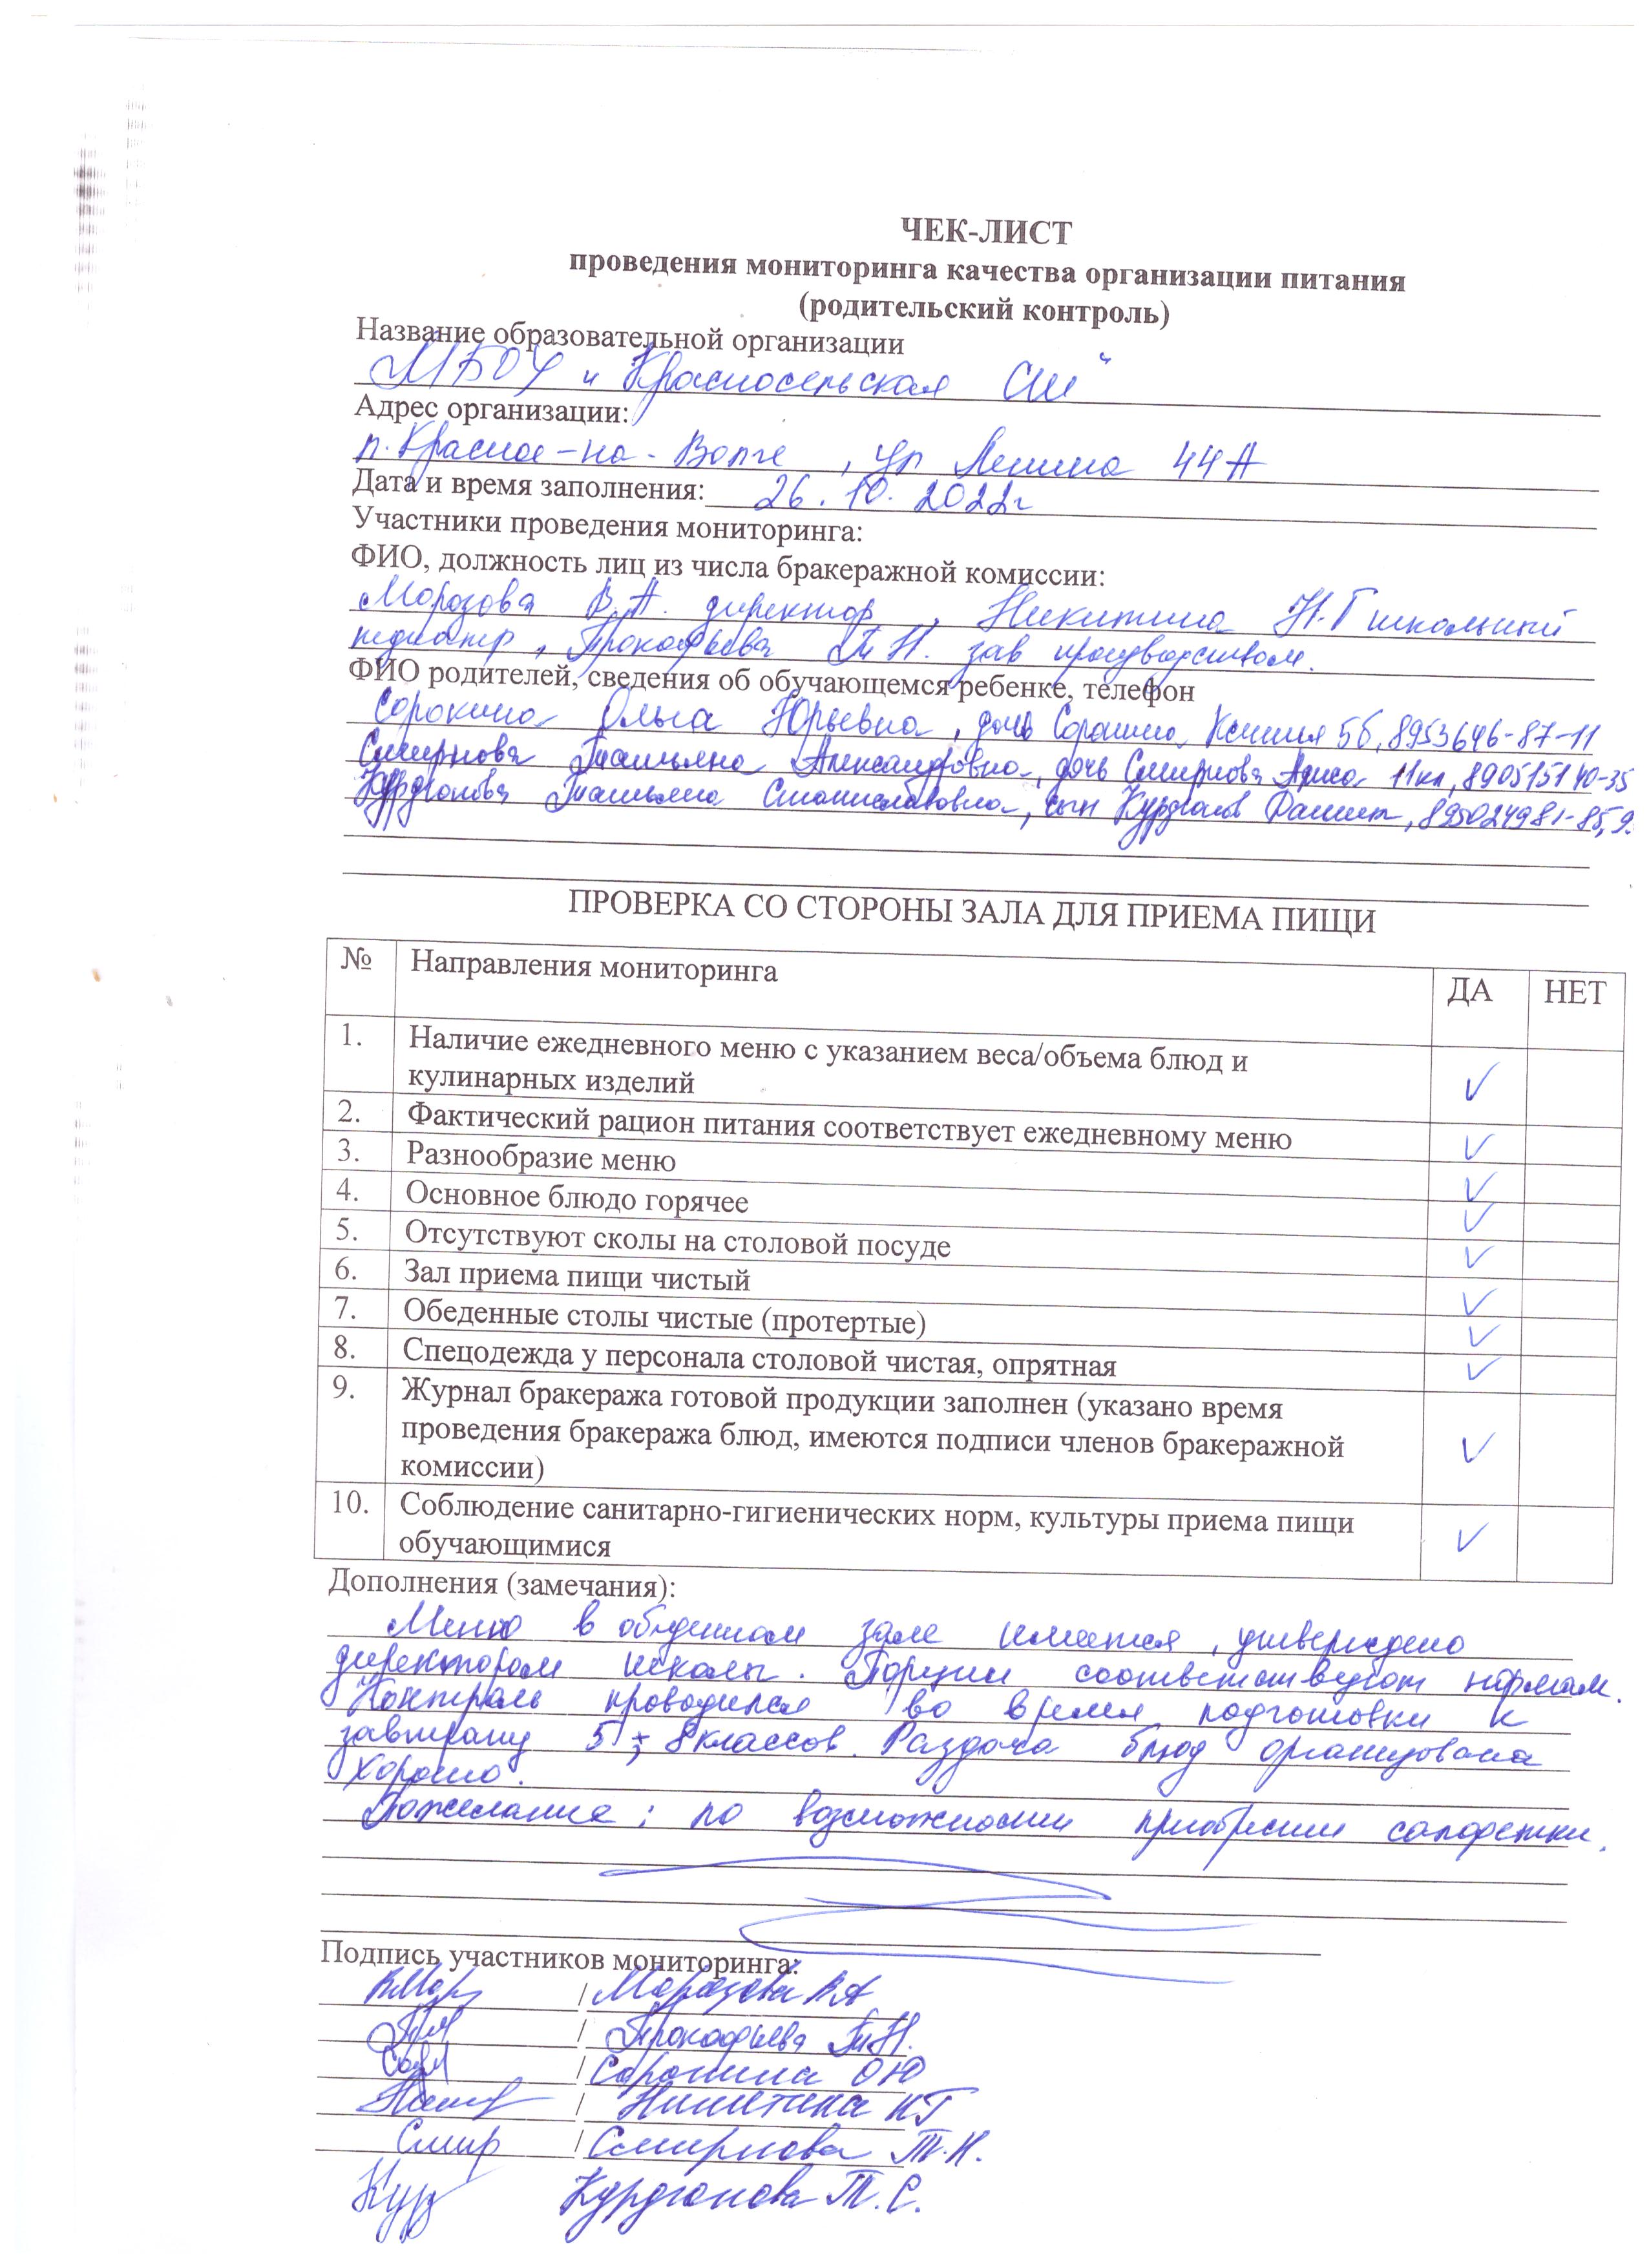 ЧЕК-ЛИСТ
проведения мониторинга качества организации питания
(родительский контроль)
Название образовательной организации
МБОУ „Красносельская СШ“
Адрес организации:
п. Красное-на-Волге, ул Ленина 44А
Дата и время заполнения: 26.10.2022г
Участники проведения мониторинга:
ФИО, должность лиц из числа бракеражной комиссии:
Морозова В.А. директор, Никитина Н.Г школьный
педиатр, Прокофьева Т.Н. зав производством.
ФИО родителей, сведения об обучающемся ребенке, телефон
Сорокина Ольга Юрьевна, дочь Ксения 5б, 8953646-87-11
Смирнова Татьяна Александровна, дочь Смирнова 11кл, 890515140-35
Татьяна Станиславовна, сын 895024981-85, 9
ПРОВЕРКА СО СТОРОНЫ ЗАЛА ДЛЯ ПРИЕМА ПИЩИ
№ Направления мониторинга ДА НЕТ
1. Наличие ежедневного меню с указанием веса/объема блюд и
кулинарных изделий ✓
2. Фактический рацион питания соответствует ежедневному меню ✓
3. Разнообразие меню ✓
4. Основное блюдо горячее ✓
5. Отсутствуют сколы на столовой посуде ✓
6. Зал приема пищи чистый ✓
7. Обеденные столы чистые (протертые) ✓
8. Спецодежда у персонала столовой чистая, опрятная ✓
9. Журнал бракеража готовой продукции заполнен (указано время
проведения бракеража блюд, имеются подписи членов бракеражной ✓
комиссии)
10. Соблюдение санитарно-гигиенических норм, культуры приема пищи
обучающимися ✓
Дополнения (замечания):
Меню в обеденном зале имеется, утверждено
директором школы. Порции соответствуют нормам.
Контроль проводился во время подготовки к
завтраку 5 8 классов. Раздача блюд организована
хорошо.
Пожелание: по возможности приобрести салфетки.
Подпись участников мониторинга:
/ Морозова В А
/ Прокофьева Т.Н.
/ Сорокина О Ю
/ Никитина Н Г
Смир / Смирнова Т.
Кур Т.С.